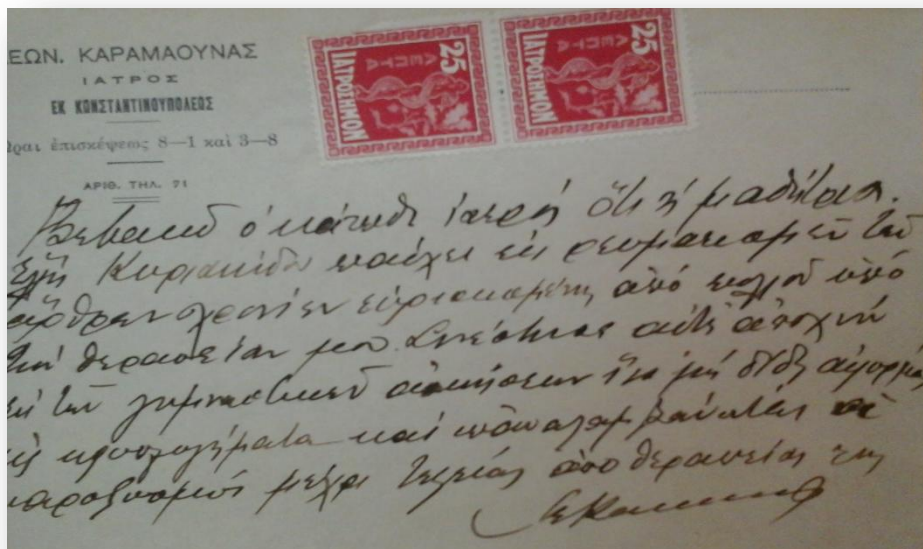 ΛΕΩΝ. ΚΑΡΑΜΑΟΥΝΑΣ
ΙΑΤΡΟΣ
ΕΚ ΚΩΝΣΤΑΝΤΙΝΟΥΠΟΛΕΩΣ
Ὧραι ἐπισκέψεως 8—1 καὶ 3—8
ΑΡΙΘ. ΤΗΛ. 71
25 ΛΕΠΤΑ ΙΑΤΡΟΣΗΜΟΝ
25 ΛΕΠΤΑ ΙΑΤΡΟΣΗΜΟΝ
Βεβαιῶ ὁ κάτωθι ἰατρὸς ὅτι ἡ μαθήτρια
Κυριακίδου πάσχει ἐκ ρευματισμῶν τῶν
ἄρθρων χρονίων εὑρισκομένη ἀπὸ πολλοῦ ὑπὸ
τὴν θεραπείαν μου. Συνέστησα αὐτῇ ἀποχὴν
ἐκ τῶν γυμναστικῶν ἀσκήσεων ἵνα μὴ δίδῃ ἀφορμὰς
εἰς κρυολογήματα καὶ
παροξυσμοὺς μέχρι τελείας ἀποθεραπείας της